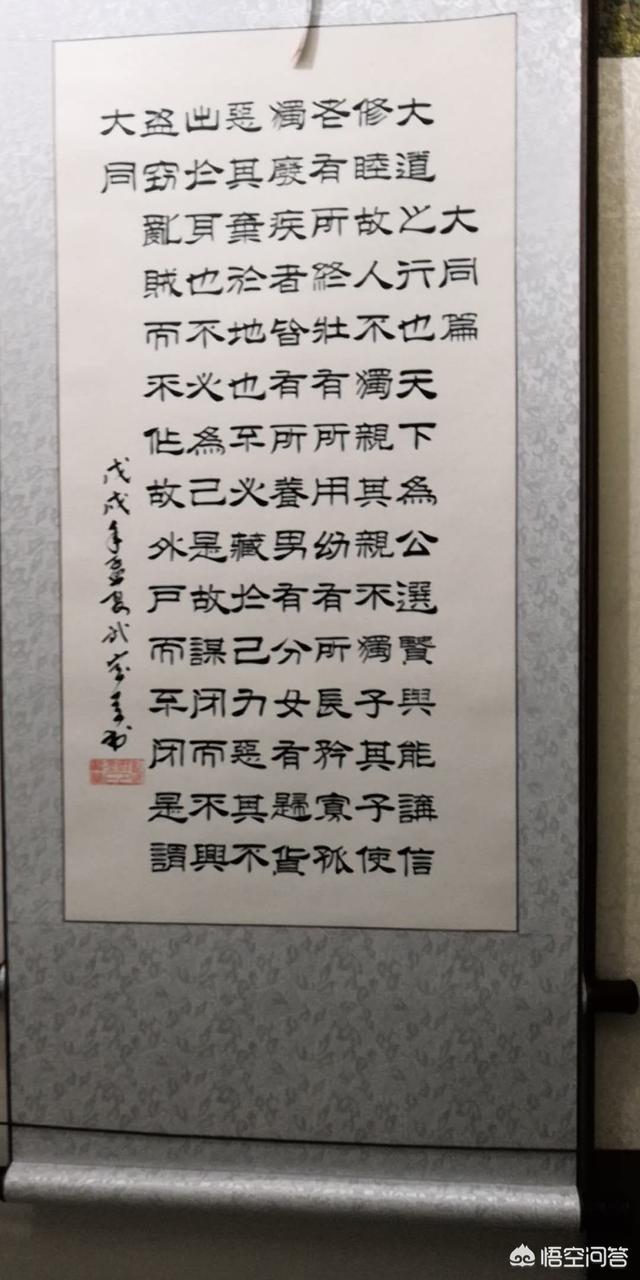 大同篇
大道之行也天下為公選賢與能講信
修睦故人不獨親其親不獨子其子使
老有所終壯有所用幼有所長矜寡孤
獨廢疾者皆有所養男有分女有歸貨
惡其棄於地也不必藏扵己力惡其不
出扵身也不必為己是故謀閉而不興
盜竊亂賊而不作故外戶而不閉是謂
大同
戊戌年孟夏
悟空问答